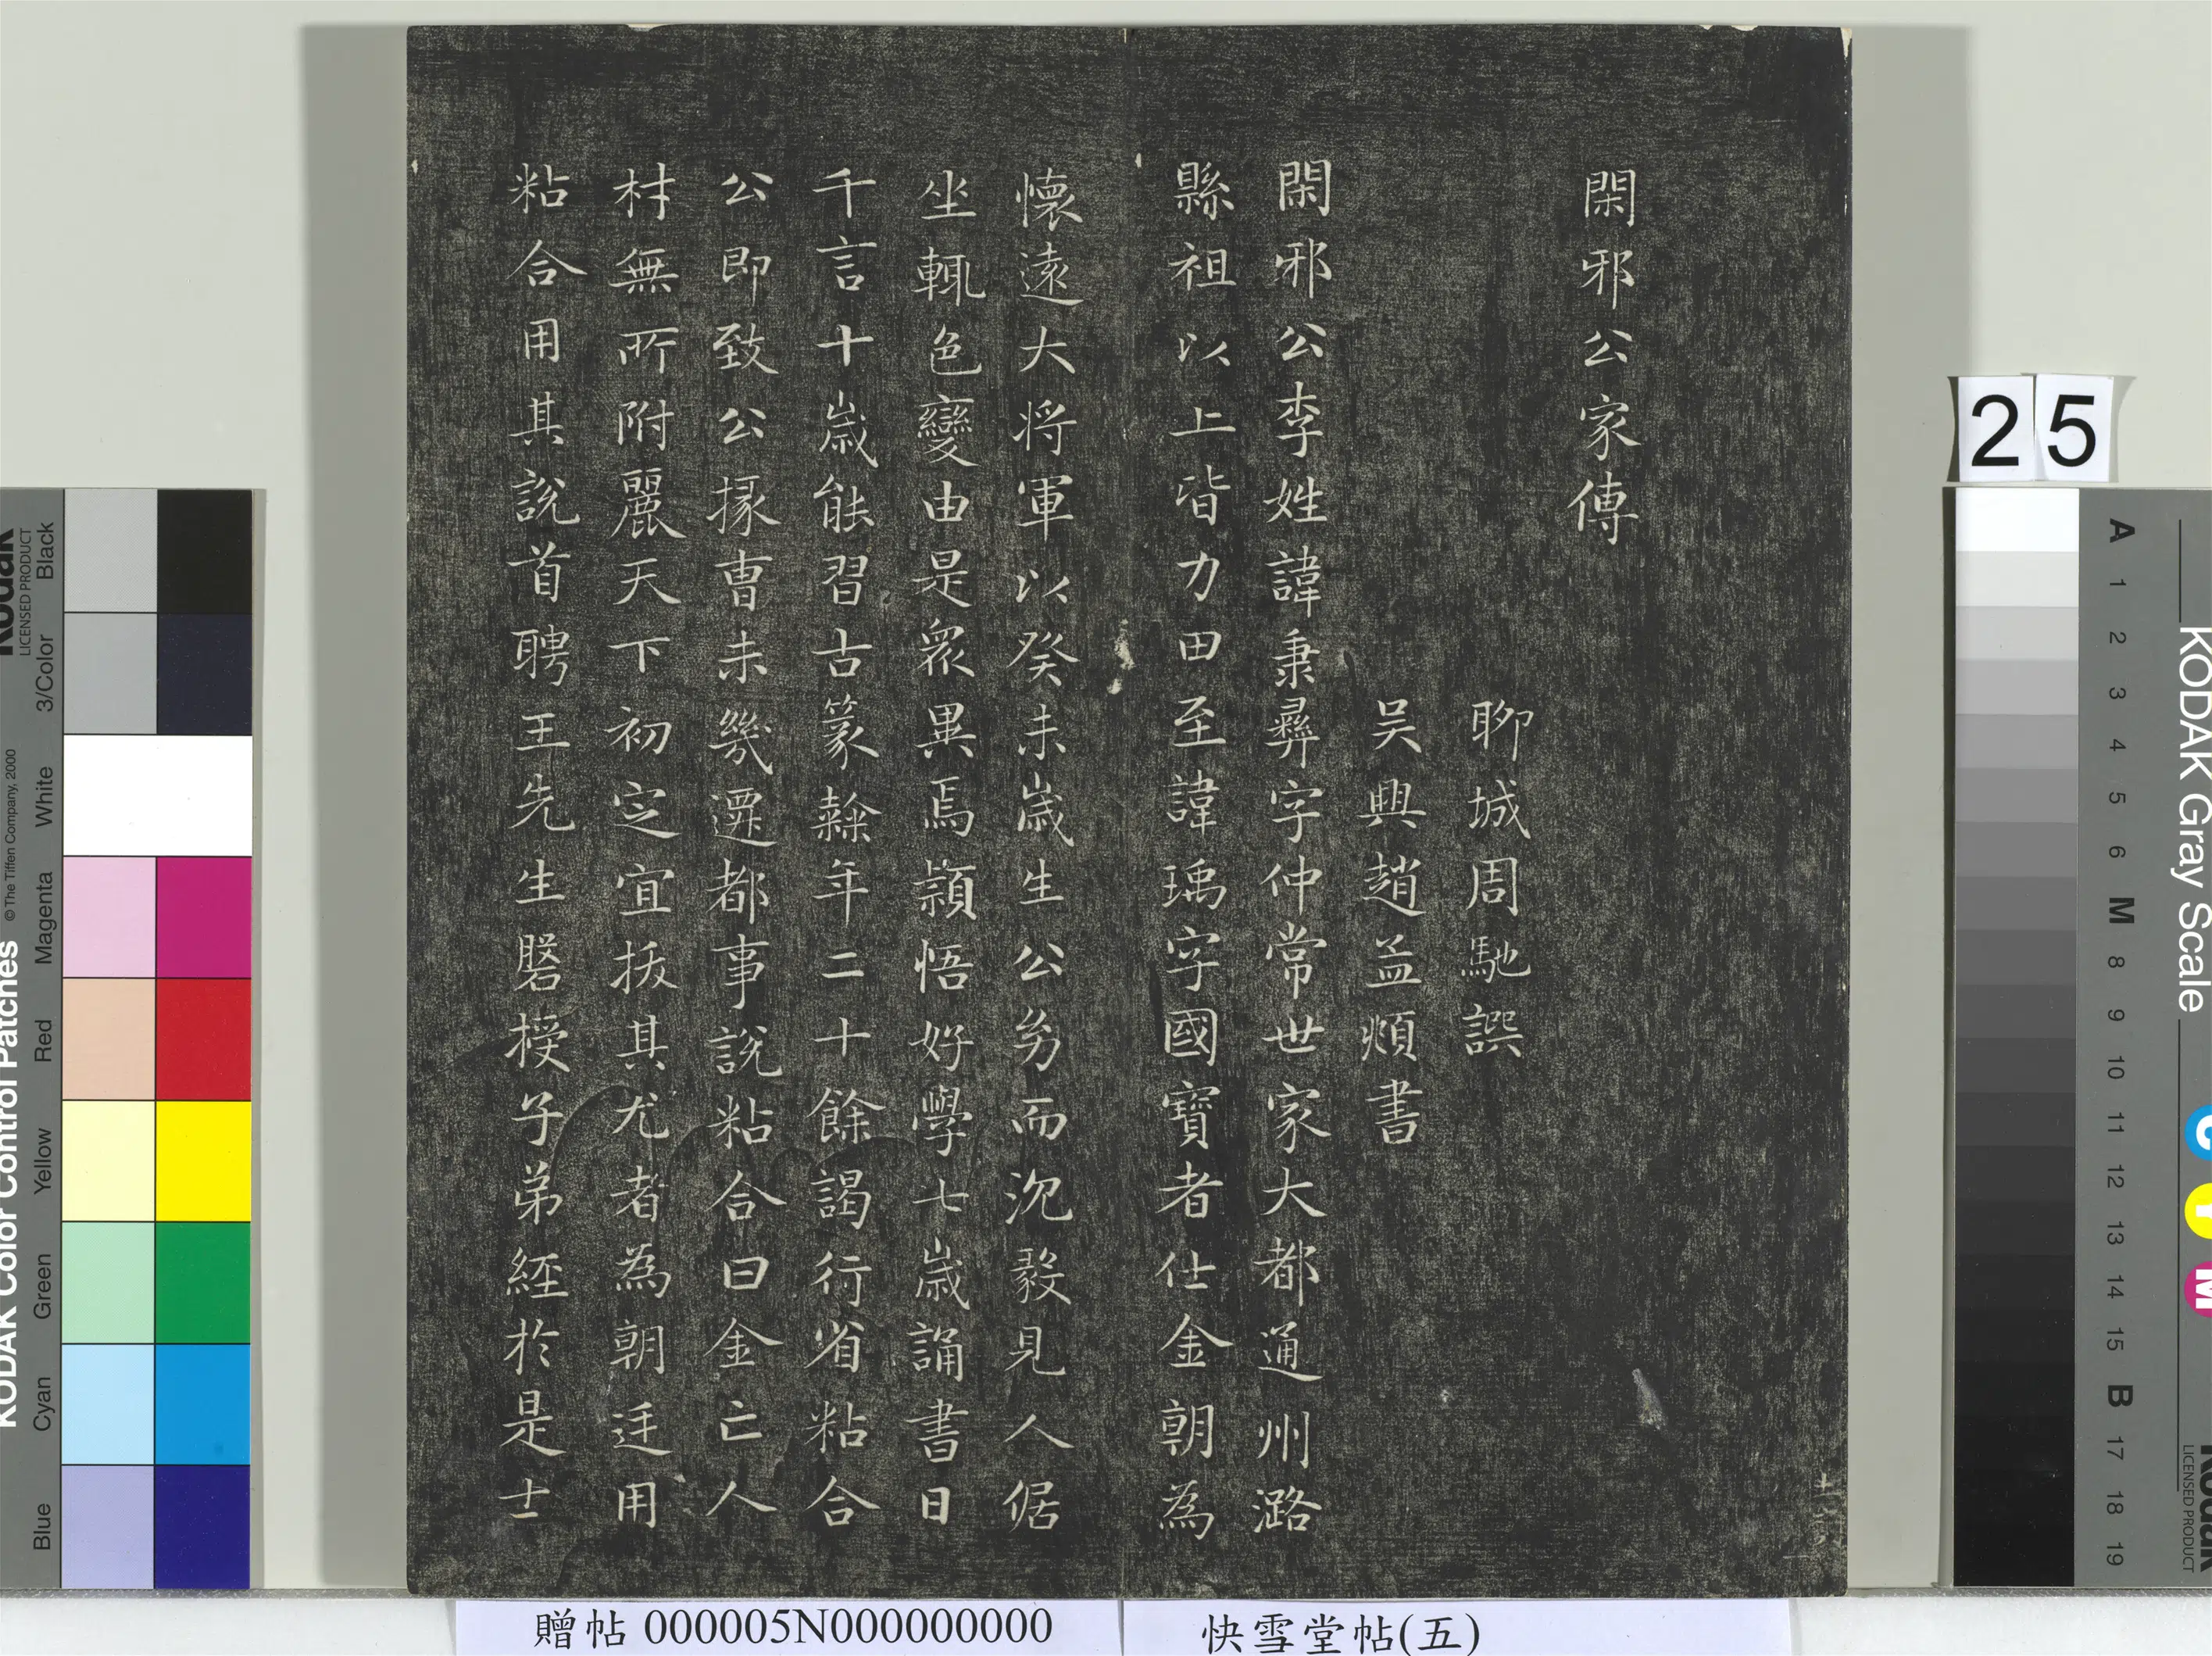 閑邪公家傳
聊城周馳譔
吴興趙孟頫書
閑邪公李姓諱秉彝字仲常世家大都通州潞
縣祖以上皆力田至諱瑀字國寶者仕金朝為
懷遠大将軍以癸未歲生公㓜而沉毅見人倨
坐輒色變由是衆異焉穎悟好學七歲誦書日
千言十歲能習古篆䋣年二十餘謁行省粘合
公即致公掾曹未幾遷都事說粘合曰金亡人
材無所附麗天下初定宜拔其尤者為朝廷用
粘合用其說首聘王先生磐授子弟經於是士
25
贈帖 000005N000000000
快雪堂帖(五)
KODAK Color Control Patches
© The Tiffen Company, 2000
Kodak
LICENSED PRODUCT
Blue
Cyan
Green
Yellow
Red
Magenta
White
3/Color
Black
KODAK Gray Scale
C
Y
M
Kodak
LICENSED PRODUCT
A
1
2
3
4
5
6
M
8
9
10
11
12
13
14
15
B
17
18
19